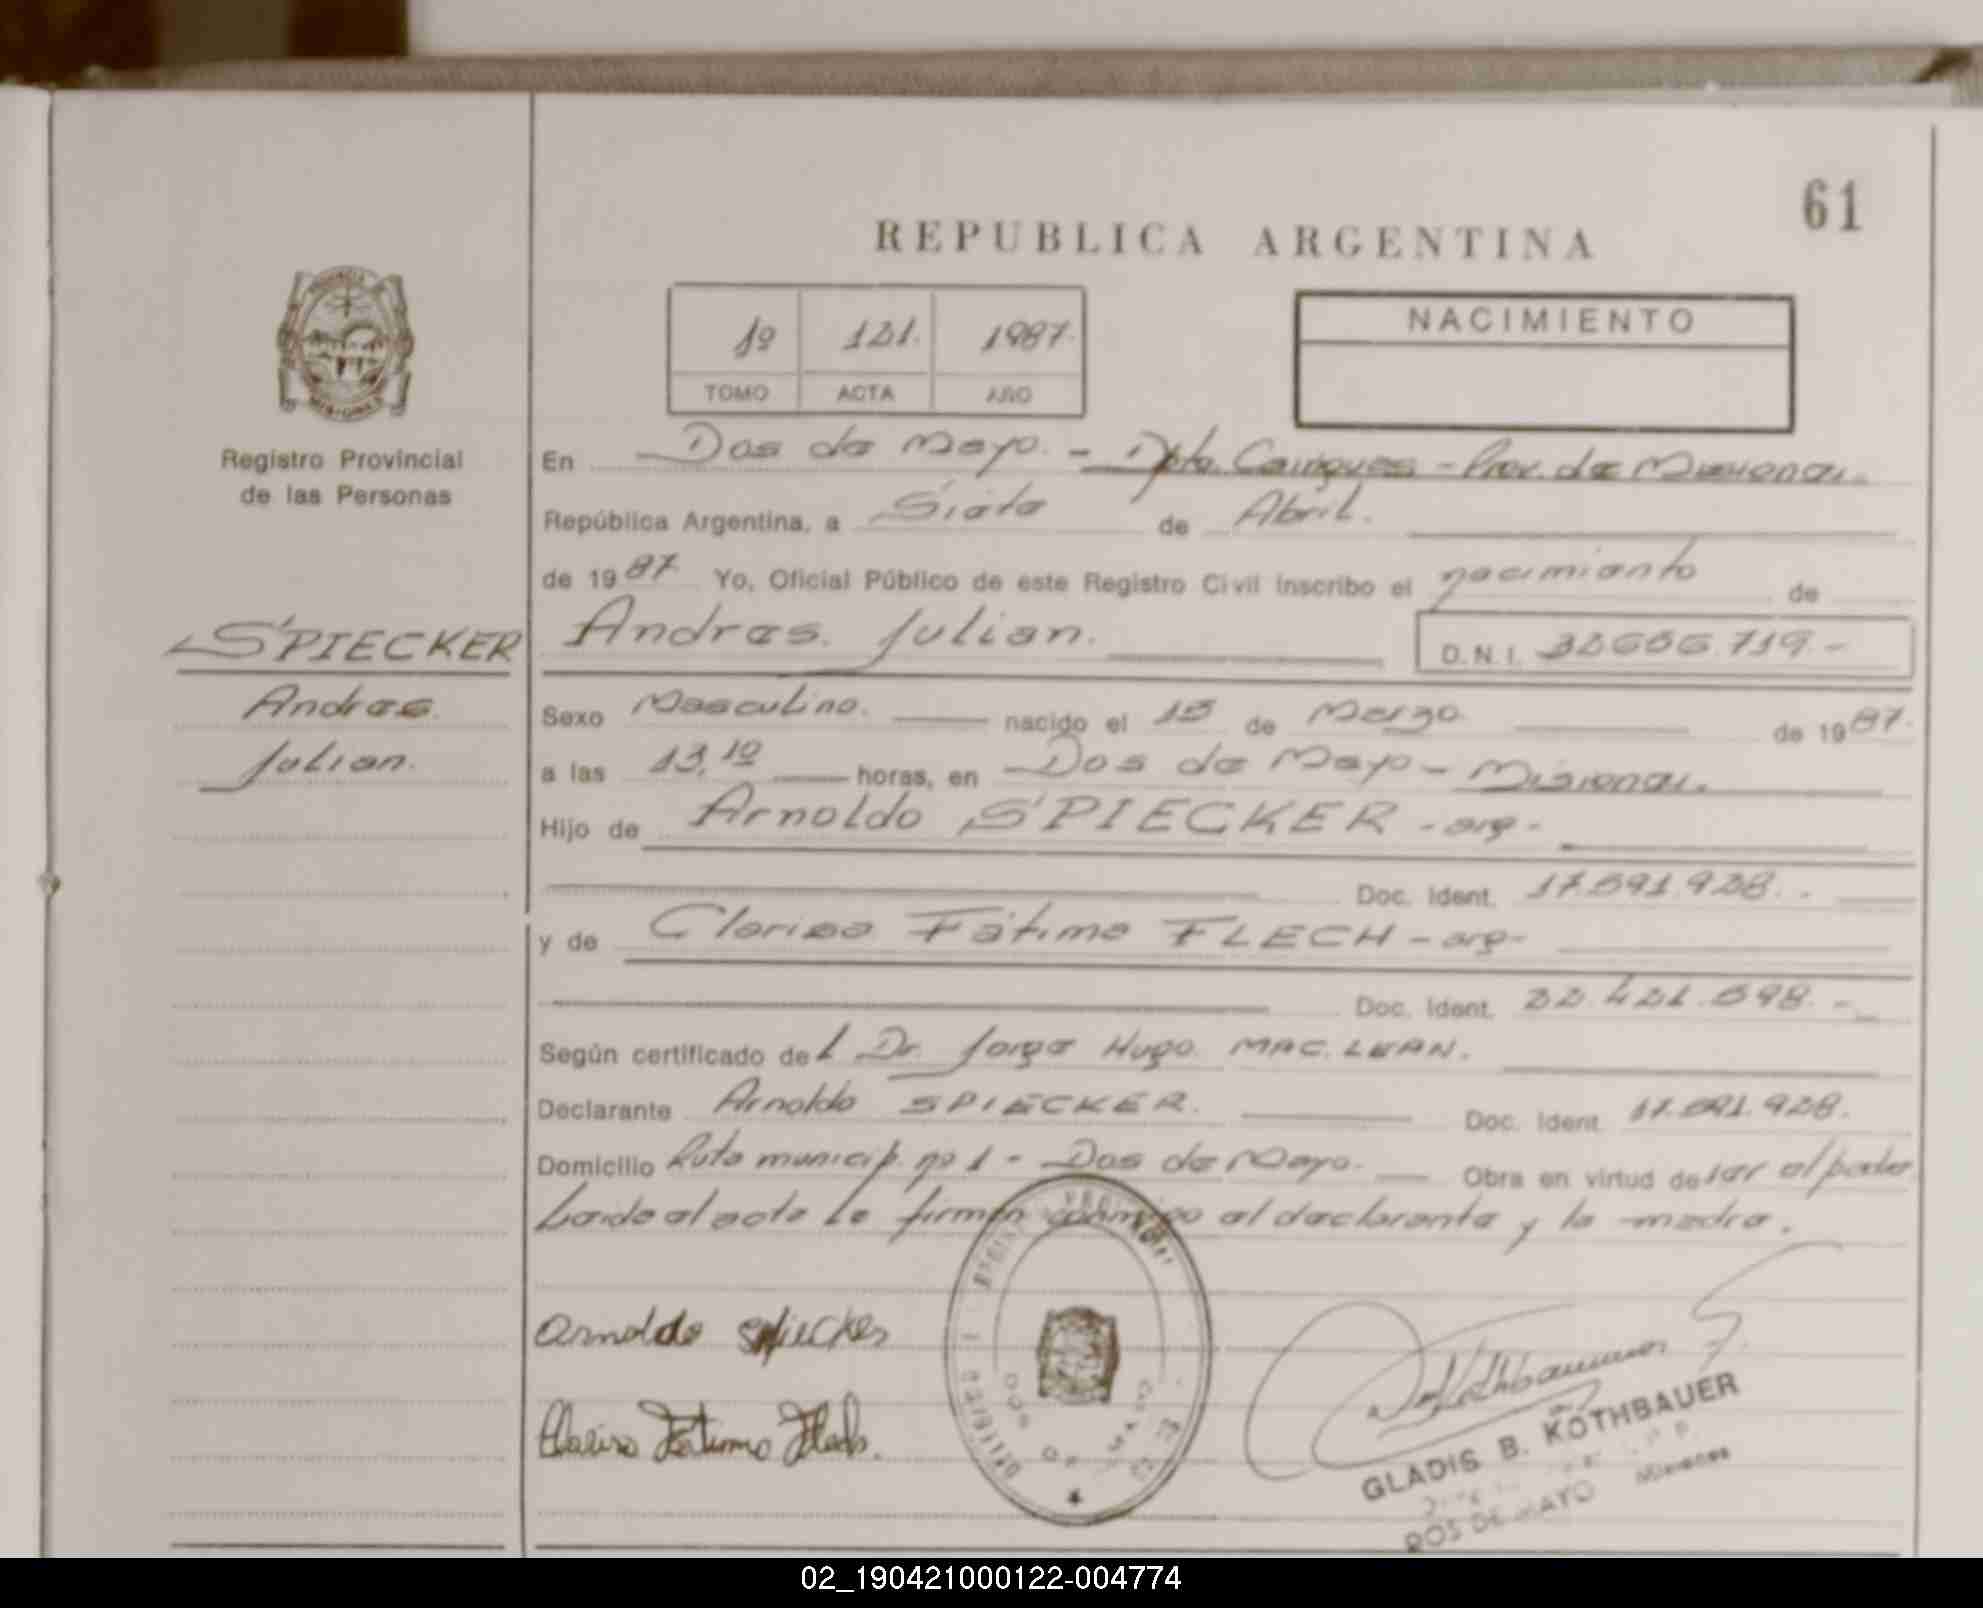 61
REPUBLICA ARGENTINA
1º 121. 1987.
TOMO ACTA AÑO
NACIMIENTO
Registro Provincial
de las Personas
SPIECKER
Andres
Julian.
En Dos de Mayo. - Dpto. Cainguas - Prov. de Misiones.
República Argentina, a Siete de Abril.
de 1987 Yo, Oficial Público de este Registro Civil inscribo el nacimiento de
Andres. Julian. D.N.I. 719.-
Sexo Masculino. nacido el 15 de Marzo de 1987.
a las 13,10 horas, en Dos de Mayo - Misiones.
Hijo de Arnoldo SPIECKER - arg -
Doc. Ident. 17.591.928.
y de Clarisa Fátima FLECH - arg -
Doc. Ident. 22.421.598.-
Según certificado del Dr. Jorge Hugo MAC. LEAN.
Declarante Arnoldo SPIECKER. Doc. Ident. 17.591.928.
Domicilio Ruta municip. nº 1 - Dos de Mayo. Obra en virtud de ser el padre
Leida el acta la firman conmigo el declarante y la madre.
Arnoldo Spiecker
Clarisa Fatima Flech.
DOS DE MAYO
GLADIS B. KOTHBAUER
DOS DE MAYO Misiones
02_190421000122-004774